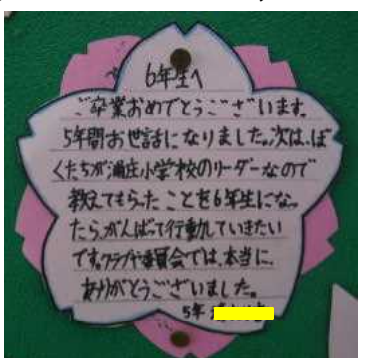 6年生へ
ご卒業おめでとうございます。
5年間お世話になりました。次は、ぼ
くたちが湯庄小学校のリーダーなので
教えてもらったことを6年生になっ
たら、がんばって行動していきたい
です。クラブや委員会では、本当に、
ありがとうございました。
5年